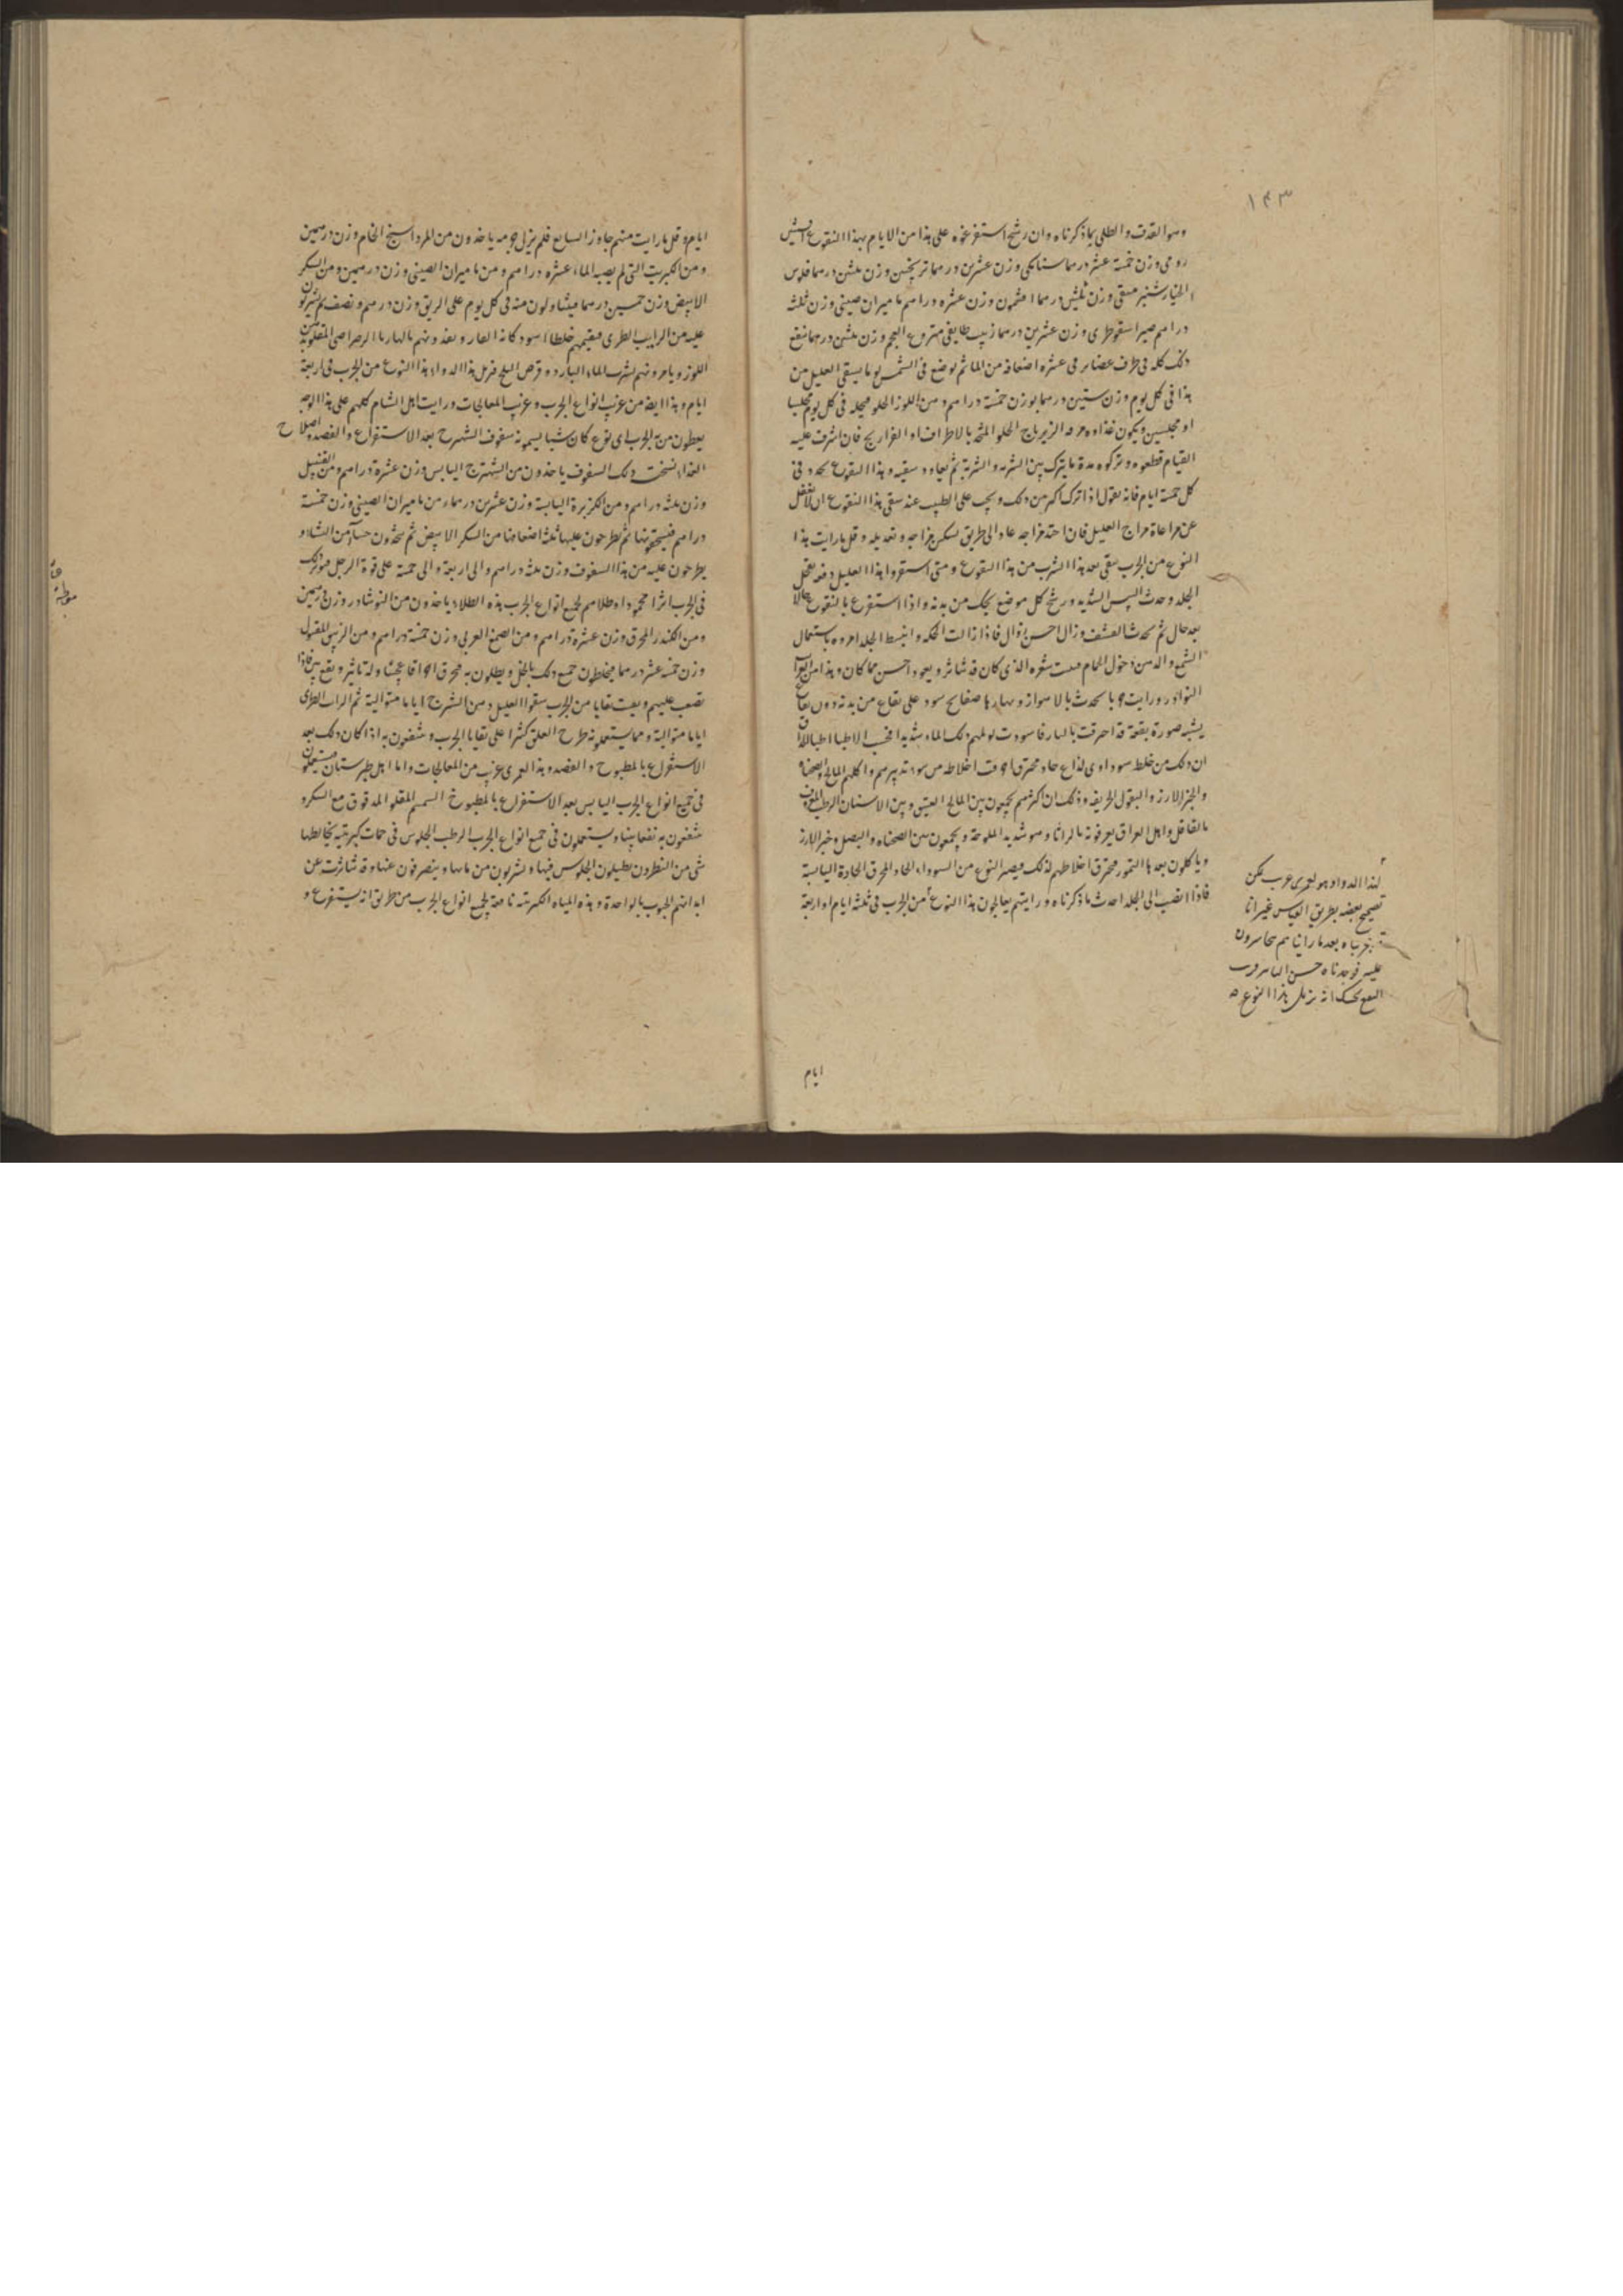 ١٤٣
وهو القذف والطلي بما ذكرناه وان رشح استفرغوه على هذا من الايام بهذا النقوع افسنتين
رومي وزن خمسة عشر درهما سنامكي وزن عشرين درهما تربجبين وزن ثلثين درهما فلوس
الخيارشنبر منقى وزن ثلثين درهما افثيمون وزن عشرة دراهم ماميران صيني وزن ثلثة
دراهم صبر اسقوطرى وزن عشرين درهما زبيب طايفي منزوع العجم وزن ثلثين درهما ينقع
ذلك كله في ظرف غضاير في عشرة اضعافه من الماء ثم يوضع في الشمس يوما يسقى العليل من
هذا في كل يوم وزن ستين درهما بوزن خمسة دراهم دهن اللوز الحلو فيحله في كل يوم مجلسا
او مجلسين ويكون غذاوه مرقه الزيرباج الحلو المتخذ بالاطراف او الفراريج فان اشرف عليه
القيام قطعوه وتركوه مدة ما يترك بين الشربه والشربة ثم يعاود سقيه وهذا النقوع يجدد في
كل خمسة ايام فانه يقول اذا ترك اكثر من ذلك ويجب على الطبيب عند سقي هذا النقوع ان لا يغفل
عن مراعاة مزاج العليل فان احتد مزاجه عاد الى طريق تسكين مزاجه وتعديله وقل ما رايت هذا
النوع من الجرب يبقى بعد هذا الشرب من هذا النقوع ومتى استفرغوا هذا العليل دفعه تقحل
الجلد وحدث اليبس الشديد ورشح كل موضع يحك من بدنه واذا استفرغ بالنقوع حالا
بعد حال ثم يحدث القشف وزال احسن زوال فاذا زالت الحكه وانبسط الجلد امروه باستعمال
الشمع والدهن ودخول الحمام فينبت شعره الذي كان قد تناثر ويعود احسن مما كان وهذا من
النوادر ورايت جربا يحدث بالاهواز ونهارها صفايح سود على بقاع من بدنه دون بقاع
يشبه صورة بقعة قد احرقت بالنار فاسودت يولمهم ذلك الماء شديدا فحسب الاطبا
ان ذلك من خلط سوداوى لذاع حاد محترق احرقت اخلاطه من سوء تدبيرهم واكلهم المالح والصحناه
والخبز الارز والبقول الحريفه وذلك ان اكثرهم يجمعون بين المالح العتيق وبين الاسنان الرطب المعروف
بالقاقل واهل العراق يعرفونه بالراثا وهو شديد الملوحة ويجمعون بين الصحناه والبصل وخبز الارز
وياكلون بعدها التمور فيحترق اخلاطهم لذلك ويصير النوع من السوداء الحاد المحرق الحادة اليابسة
فاذا انصب الى الجلد احدث ما ذكرناه ورايتهم يعالجون هذا النوع من الجرب في ثلثة ايام او اربعة
لهذا الدواء وهو لعمري غريب يمكن
تصحيح بعضه بطريق القياس غير انا
جربناه بعدما رايناهم
عليه فوجدناه حسن التاثير
النفع يحسبك انه يزيل هذا النوع
ايام
ايام وقل ما رايت منهم جاوز السابع فلم يزل جربه ياخذون من المرداسنج الخام وزن درهمين
ومن الكبريت التي لم يصبه الماء عشره دراهم ومن ماميران الصيني وزن درهمين ومن السكر
الابيض وزن خمسين درهما فيتناولون منه في كل يوم على الريق وزن درهم ونصف ثم يشربون
عليه من الرايب الطري فيقيمهم خلطا اسود كانه القار ويغذونهم بالنهار بالرصاصي المقلو بدهن
اللوز ويامرونهم بشرب الماء البارد وقرص الثلج فيزيل هذا الدواء هذا النوع من الجرب في اربعة
ايام وهذا ايضا من غريب انواع الجرب وغريب المعالجات ورايت اهل الشام كلهم على هذا الوجه
يعطون من به الجرب اى نوع كان شيا يسمونه سفوف الشهترج بعد الاستفراغ والفصد واصلاح
الغذاء نسخة ذلك السفوف ياخذون من الشهترج اليابس وزن عشرة دراهم ومن
وزن ثلثة دراهم ومن الكزبرة اليابسة وزن عشرين درهما ومن ماميران الصيني وزن خمسة
دراهم فيسحقونها ثم يطرحون عليها ثلثة اضعافها من السكر الابيض ثم يتخذون حسآء من النشا و
يطرحون عليه من هذا السفوف وزن ثلثة دراهم والى اربعة والى خمسة على قوة الرجل فيوثر ذلك
في الجرب اثرا محمودا وطلاهم لجميع انواع الجرب هذه الطلاء ياخذون من النوشادر وزن درهمين
ومن الكندر المحرق وزن عشرة دراهم ومن الصمغ العربي وزن خمسة دراهم ومن الزيبق المقتول
وزن خمسة عشر درهما فيخلطون جميع ذلك بالخل ويطلون به فيحرق احراقا عجيبا وله تاثير ونفع بين فاذا
تصعب عليهم وبقيت بقايا من الجرب سقوا العليل دهن الشيرج اياما متوالية ثم الرايب الطري
اياما متوالية ومما يستعملونه طرح العلق كثيرا على بقايا الجرب وينتفعون به اذا كان ذلك بعد
الاستفراغ بالمطبوخ والفصد وهذا لعمري غريب من المعالجات واما اهل طبرستان فيستعملون
في جميع انواع الجرب اليابس بعد الاستفراغ بالمطبوخ السمسم المقلو المدقوق مع السكر و
ينتفعون به نفعا بينا ويستعملون في جميع انواع الجرب الرطب الجلوس في حمات كبريتيه يخالطها
شي من النطرون يطيلون الجلوس فيها ويشربون من مائها وينصرفون عنها وقد تناثرت عن
ابدانهم الحبوب بالواحدة وهذه المياه الكبريتيه نافعة لجميع انواع الجرب من طريق انه يستفرغ و